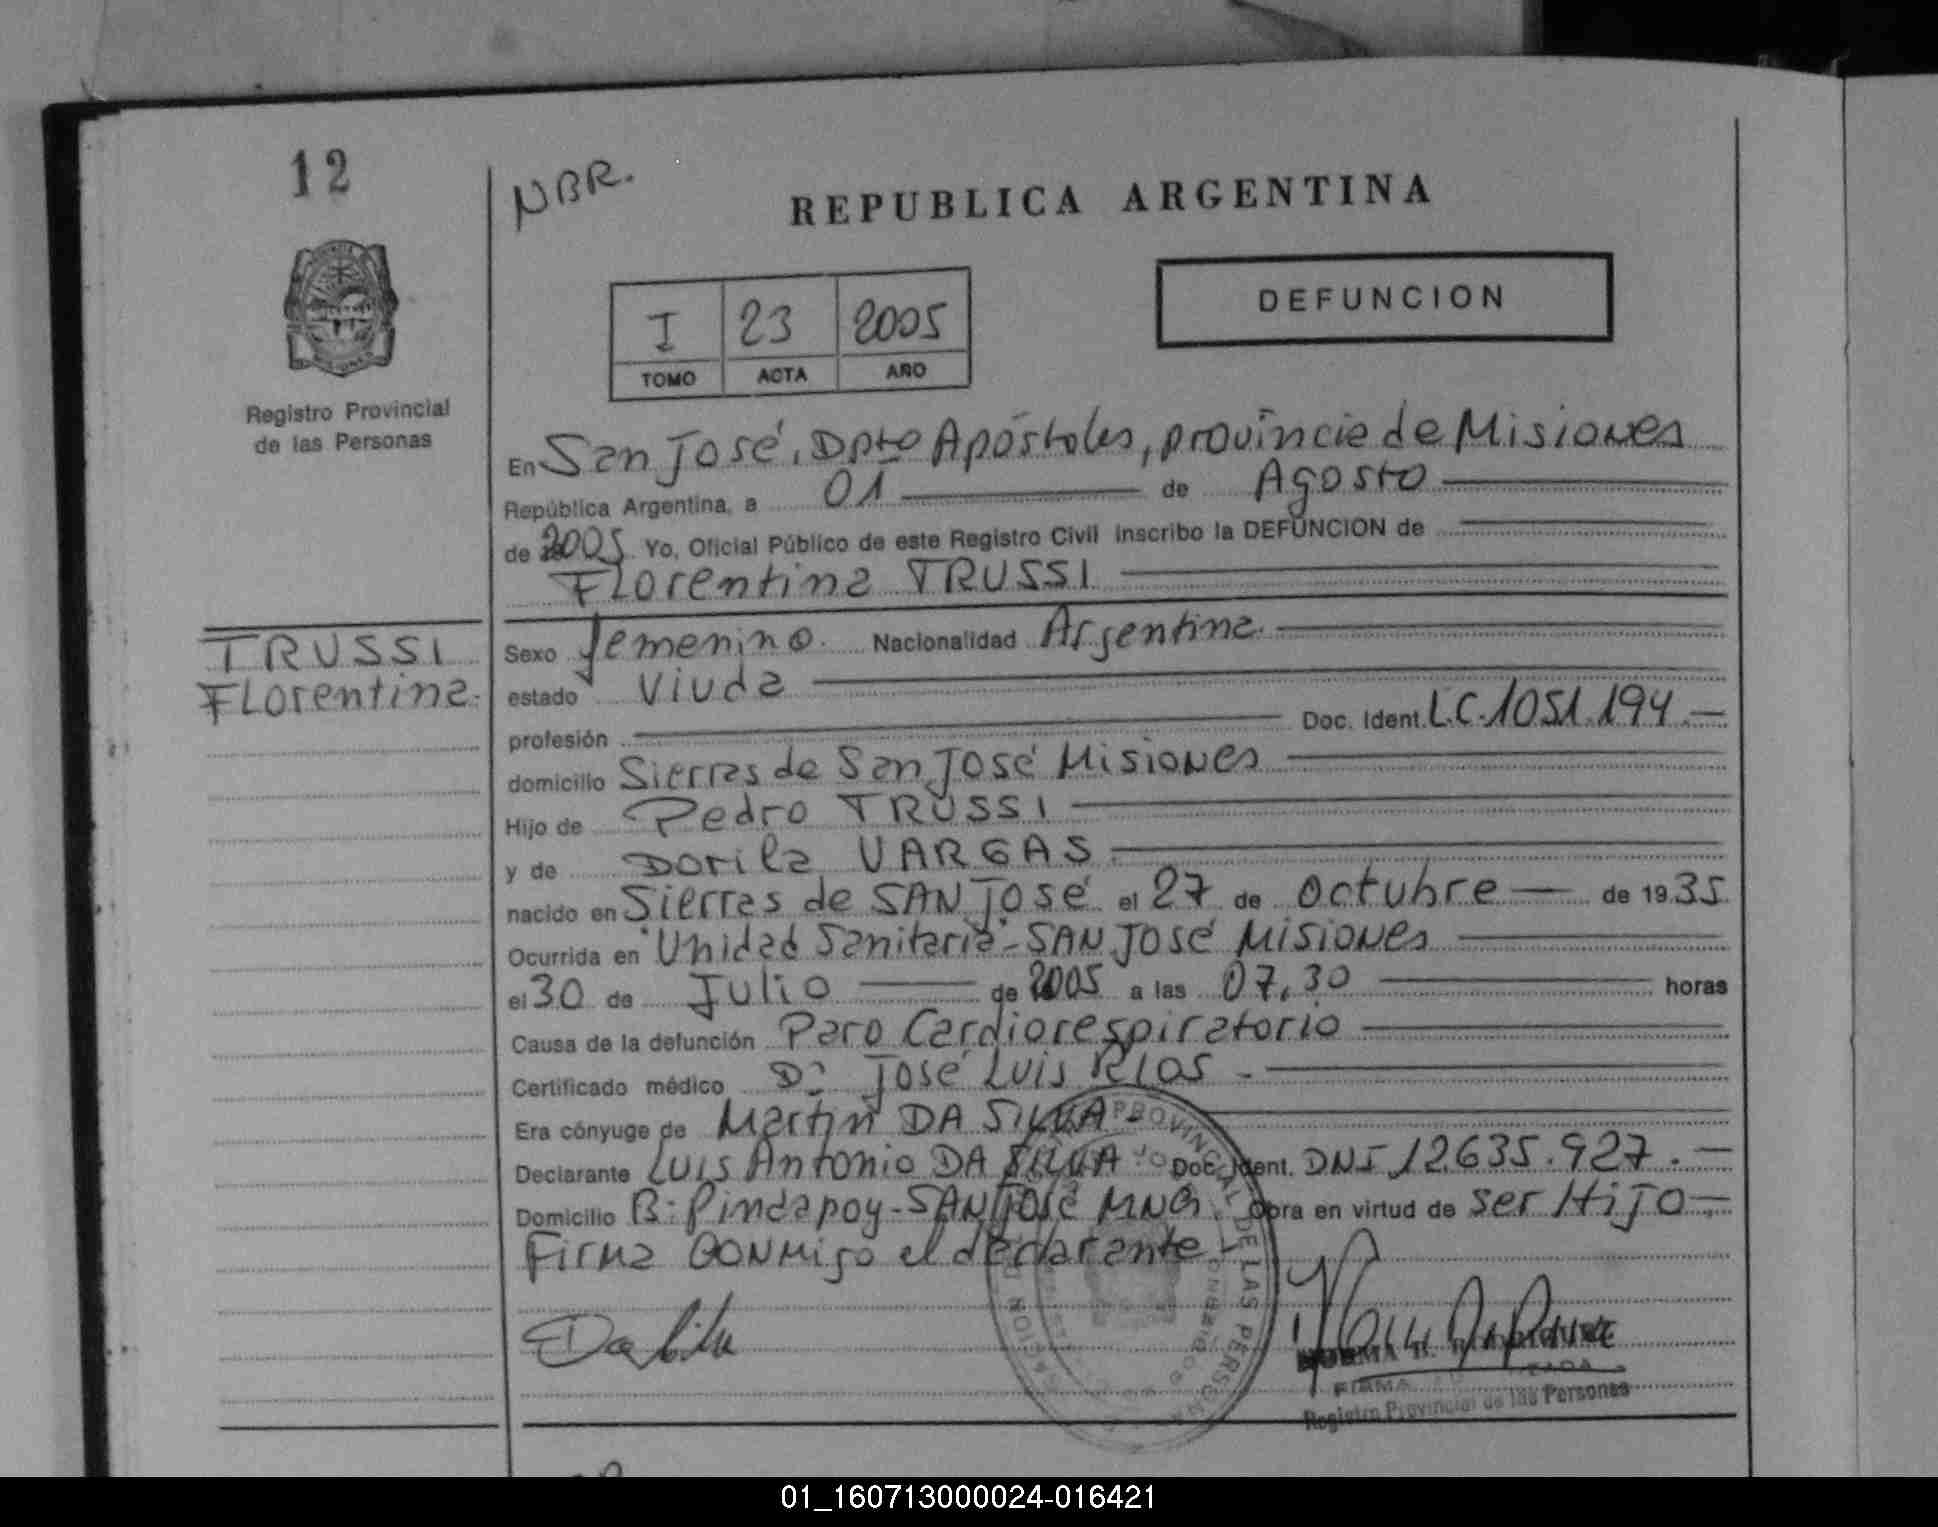 12
NBR.
REPUBLICA ARGENTINA
DEFUNCION
I 23 2005
TOMO ACTA AÑO
Registro Provincial
de las Personas
En San José, Dpto Apóstoles, provincia de Misiones
República Argentina, a 01 de Agosto
de 2005 Yo, Oficial Público de este Registro Civil inscribo la DEFUNCION de
Florentina TRUSSI
TRUSSI
Florentina.
Sexo femenino. Nacionalidad Argentina.
estado Viuda
profesión Doc. Ident. L.C. 1051.194.—
domicilio Sierras de San José Misiones
Hijo de Pedro TRUSSI
y de Dorila VARGAS
nacido en Sierras de SAN José el 27 de octubre — de 1935.
Ocurrida en "Unidad Sanitaria" - SAN José Misiones
el 30 de Julio — de 2005 a las 07,30 horas
Causa de la defunción Paro Cardiorespiratorio
Certificado médico Dr José Luis RIOS -
Era cónyuge de Martín DA SILVA -
Declarante Luis Antonio DA SILVA Doc. Ident. DNI 12.635.927.—
Domicilio B: Pindapoy - SAN José MNES. Obra en virtud de ser Hijo —
Firma CONMigo el declarante
Da Silva
PROVINCIAL DE LAS PERSONAS
NORMA B. RODRIGUEZ
FIRMA AUTORIZADA
Registro Provincial de las Personas
01_160713000024-016421